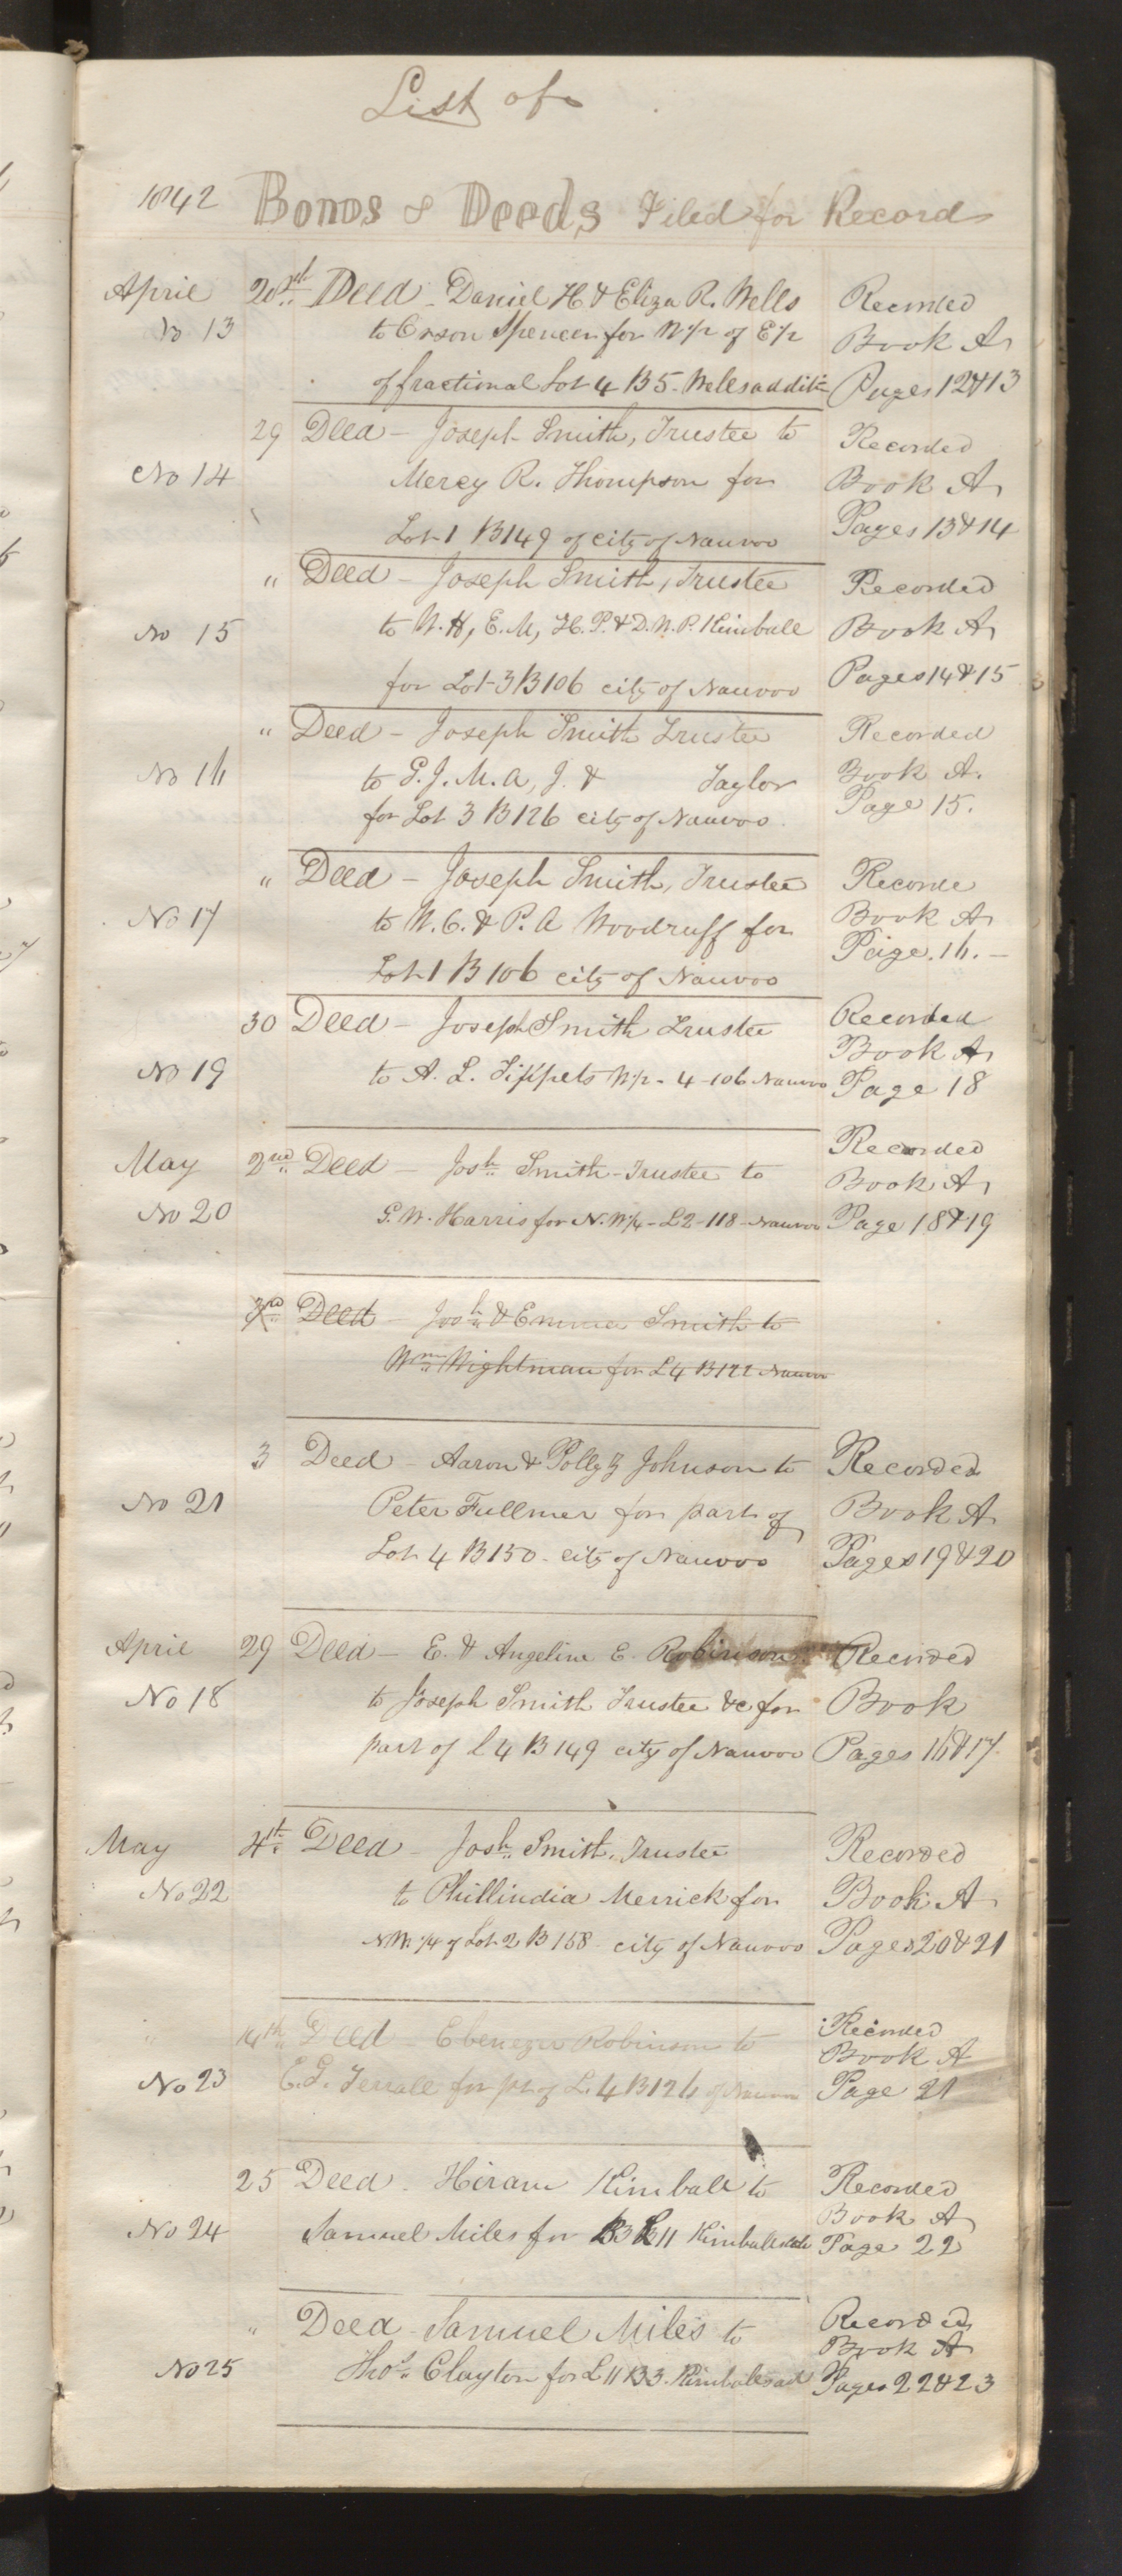 List of
1842 Bonds & Deeds Filed for Record
April 20th Deed - Daniel H. & Eliza R. Wells Recorded
No 13 to Orson Spencer for W 1/2 of E 1/2 Book A
of fractional Lot 4 B 5 - Wells addit Pages 12 & 13
29 Deed - Joseph Smith, Trustee to Recorded
No 14 Mercy R. Thompson for Book A
Lot 1 B 149 of city of Nauvoo Pages 13 & 14
" Deed - Joseph Smith, Trustee Recorded
No 15 to W. H, E. M, H. P. & D. W. P. Kimball Book A
for Lot 3 B 106 city of Nauvoo Pages 14 & 15
" Deed - Joseph Smith Trustee Recorded
No 16 to G. J. M. A, J. & Taylor Book A.
for Lot 3 B 126 city of Nauvoo. Page 15.
" Deed - Joseph Smith, Trustee Recorde
No 17 to W. C. & P. A Woodruff for Book A
Lot 1 B 106 city of Nauvoo Page. 16. -
30 Deed - Joseph Smith Trustee Recorded
Book A
No 19 to A. L. Tippets W 1/2 - 4 - 106 Nauvoo Page 18
May 2nd Deed - Josh Smith - Trustee to Recorded
Book A
No 20 G. W. Harris for N. W 1/4 - L 2 - 118 - Nauvoo Page 18 & 19
3rd Deed - Josh & Emma Smith to
Wm Wightman for L 4 B 122 Nauvoo
3 Deed - Aaron & Polly Z Johnson to Recorded
No 21 Peter Fullmer for part of Book A
Lot 4 B 150 - city of Nauvoo Pages 19 & 20
April 29 Deed - E. & Angeline E. Robinson Recorded
No 18 to Joseph Smith Trustee &c for Book
part of L 4 B 149 city of Nauvoo Pages 16 & 17.
May 4th Deed - Josh Smith, Trustee Recorded
No 22 to Phillindia Merrick for Book A
NW. 1/4 of Lot 2 B 158 city of Nauvoo Pages 20 & 21
" 14th Deed Ebenezer Robinson to Recorded
Book A
No 23 E. G. Terrale for pt of L. 4 B 126 of Nauvoo Page 21
25 Deed. Hiram Kimball to Recorded
Book A
No 24 Samuel Miles for B3 L 11 Kimballs Page 22
" Deed - Samuel Miles to Recorded
Book A
No 25 Thos Clayton for L 11 B 3. Kimballs ad Pages 22 & 23